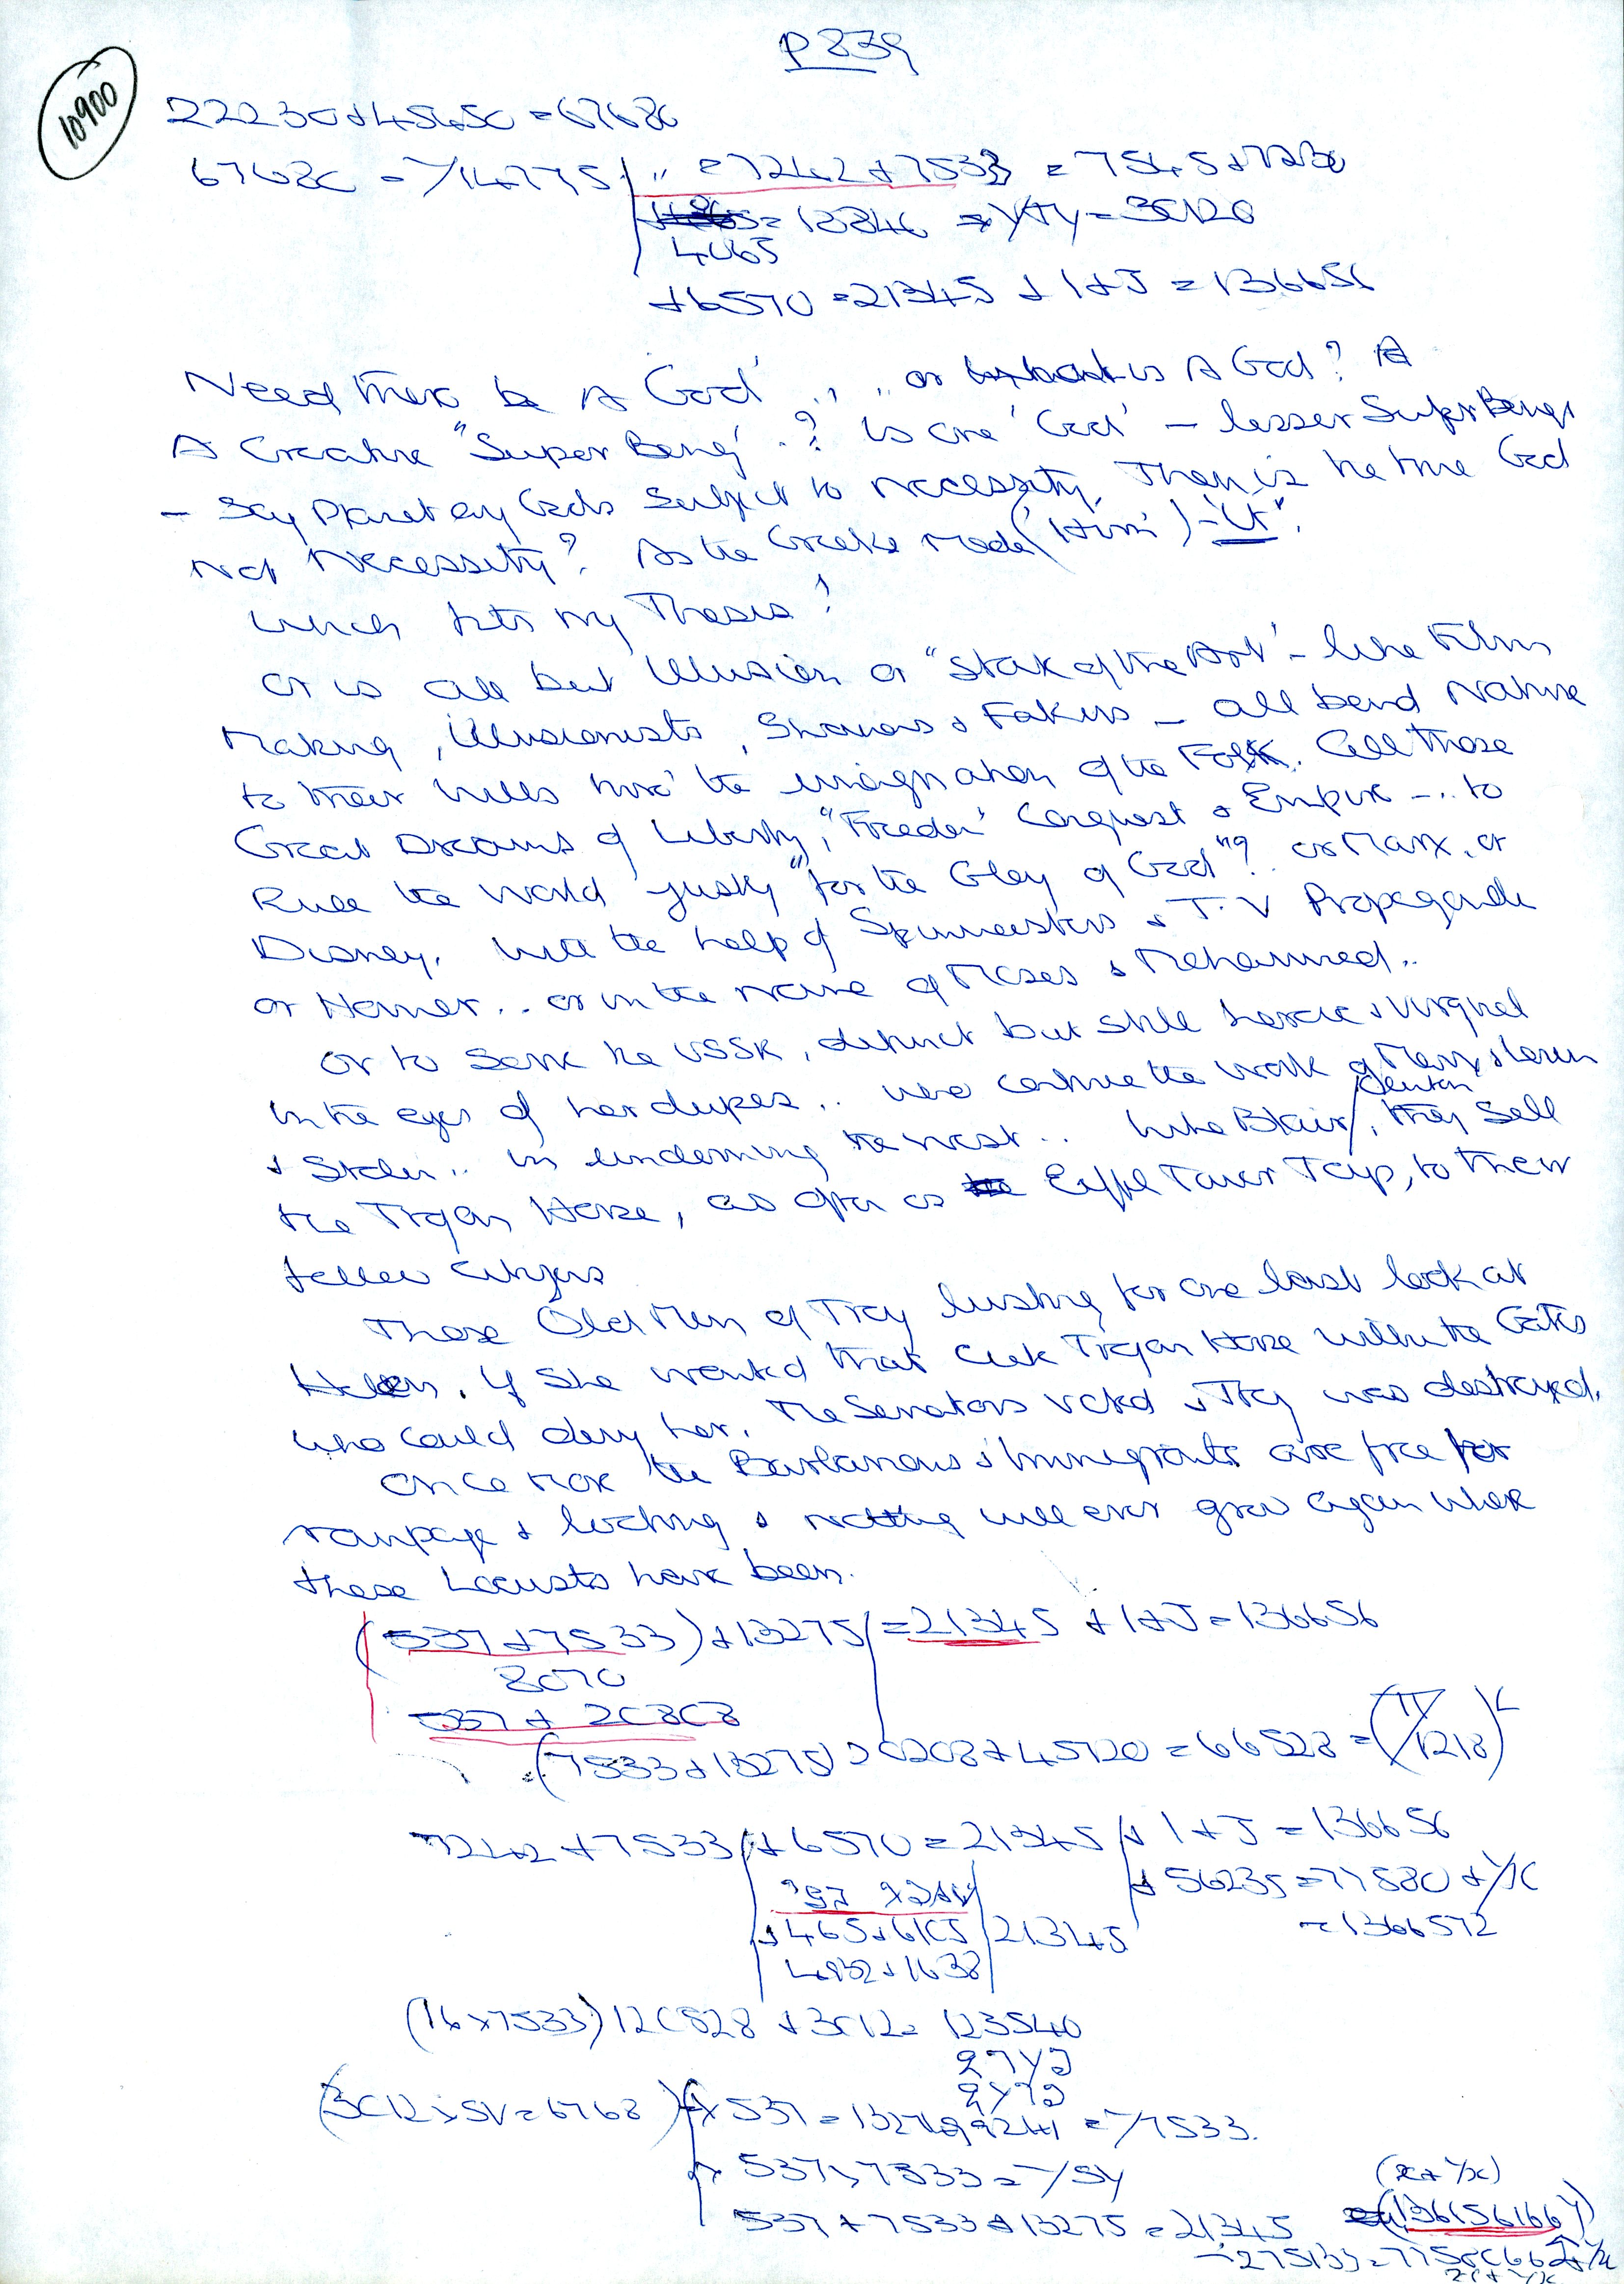 P 839
10900
22230 + 45450 = 67680
67680 = 1/14775 " = 7242 + 7533 = 7545 + 7230
= 18846 = Y+Y = 30120
4065
+ 6570 = 21345 + 1+J = 136656
Need there be A God' . , .. or is A God? A
A Creative "Super Being' .? Is one 'God' - lesser Super Beings
- Say Planetary Gods subject to necessity. Then is the true God
not Necessity? As the Greeks Made ('Him') - 'It".
Which fits my Thesis?
Or is all but illusion or "State of the Art' - like Film
Making, Illusionists, Shamans & Fakirs - all bend Nature
to their wills thro' the imagination of the Folk. All those
Great Dreams of Liberty, "Freedom' Conquest & Empire -.. to
Rule the World justly "for the Glory of God"? or Marx, or
Disney, with the help of Spinmeisters & T.V Propaganda
or Homer.. or in the name of Moses & Mohammed..
Or to Serve the USSR, defunct but still heroic & virginal
in the eyes of her dupes.. who continue the work of Marx & Lenin
& Stalin.. in undermining the West.. Like Blair / Clinton, they Sell
the Trojan Horse, as often as Eiffel Tower Trip, to their
fellow citizens
Those Old Men of Troy lusting for one last look at
Helen. If she wanted that Trojan Horse within the Gates
who could deny her. The Senators voted & Troy was destroyed.
Once more the Barbarians & Immigrants are free for
rampage & looting & nothing will ever grow again where
these Locusts have been.
(537 + 7533) + 13275 = 21345 + 1+J = 136656
8070
537 + 20808
(7533 + 13275) 20808 + 45720 = 66528 = (π/1218)
7242 + 7533 + 6570 = 21345 + 1+J = 136656
+ 56235 = 77580 + 1/x
= 1366572
+ 465 + 6105 21345
4932 + 1638
(16 x 7533) 120528 + 3012 = 123540
(3012 x SV = 6768) x 537 = = 1/7533.
x 537 x 7533 = 1/5Y
537 + 7533 + 13275 = 21345
(x + 1/x)